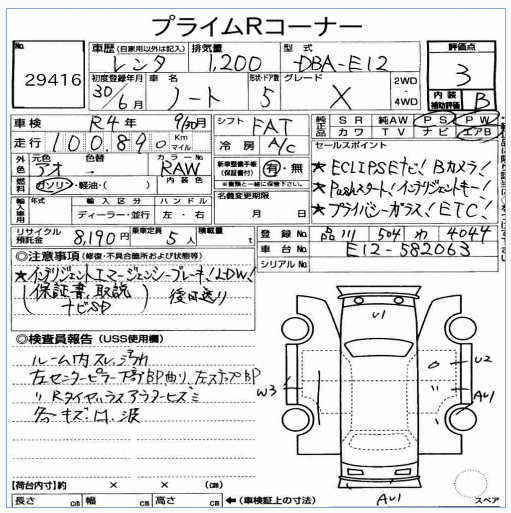 プライムRコーナー
No.
29416
車歴 (自家用以外は記入)
レンタ
排気量
1,200
型式
DBA-E12
評価点
3
内装補助評価
B
初度登録年月
30/6月
車名
ノート
形状・ドア数
5
グレード
X
2WD
・
4WD
車検
R4年 9/30月
シフト
FAT
純正品
SR 純AW PS PW
カワ TV ナビ エアB
走行
100,890
Km
マイル
冷房
A/C
セールスポイント
★ECLIPSEナビ! Bカメラ!
★Pushスタート! インテリジェントキー!
★プライバシーガラス! ETC!
外色
元色
アオ
色替
カラーNo.
RAW
内装色
燃料
ガソリン・軽油・( )
新車整備手帳
(保証書付)
有・無
※書類と一緒に保管下さい。
名義変更期限
月 日
輸入車用
年式
輸入区分
ディーラー・並行
ハンドル
左・右
リサイクル預託金
8,190円
乗車定員
5人
積載量
t
登録No.
品川 504 わ 4044
車台No.
E12-582063
シリアルNo.
◎注意事項 (修復・不具合箇所および状態等)
★インテリジェントエマージェンシーブレーキ! LDW!
(保証書、取説 ナビSD) 後日送り
◎検査員報告 (USS使用欄)
ルーム内スレ、汚れ
左センターピラー下部BP曲り、左ステップBP
〃Rタイヤハウスアウターヒズミ
各キズ凹、波
U1
U2
W3
AU1
AU1
スペア
【荷台内寸】約 × × (cm)
長さ cm 幅 cm 高さ cm ←(車検証上の寸法)